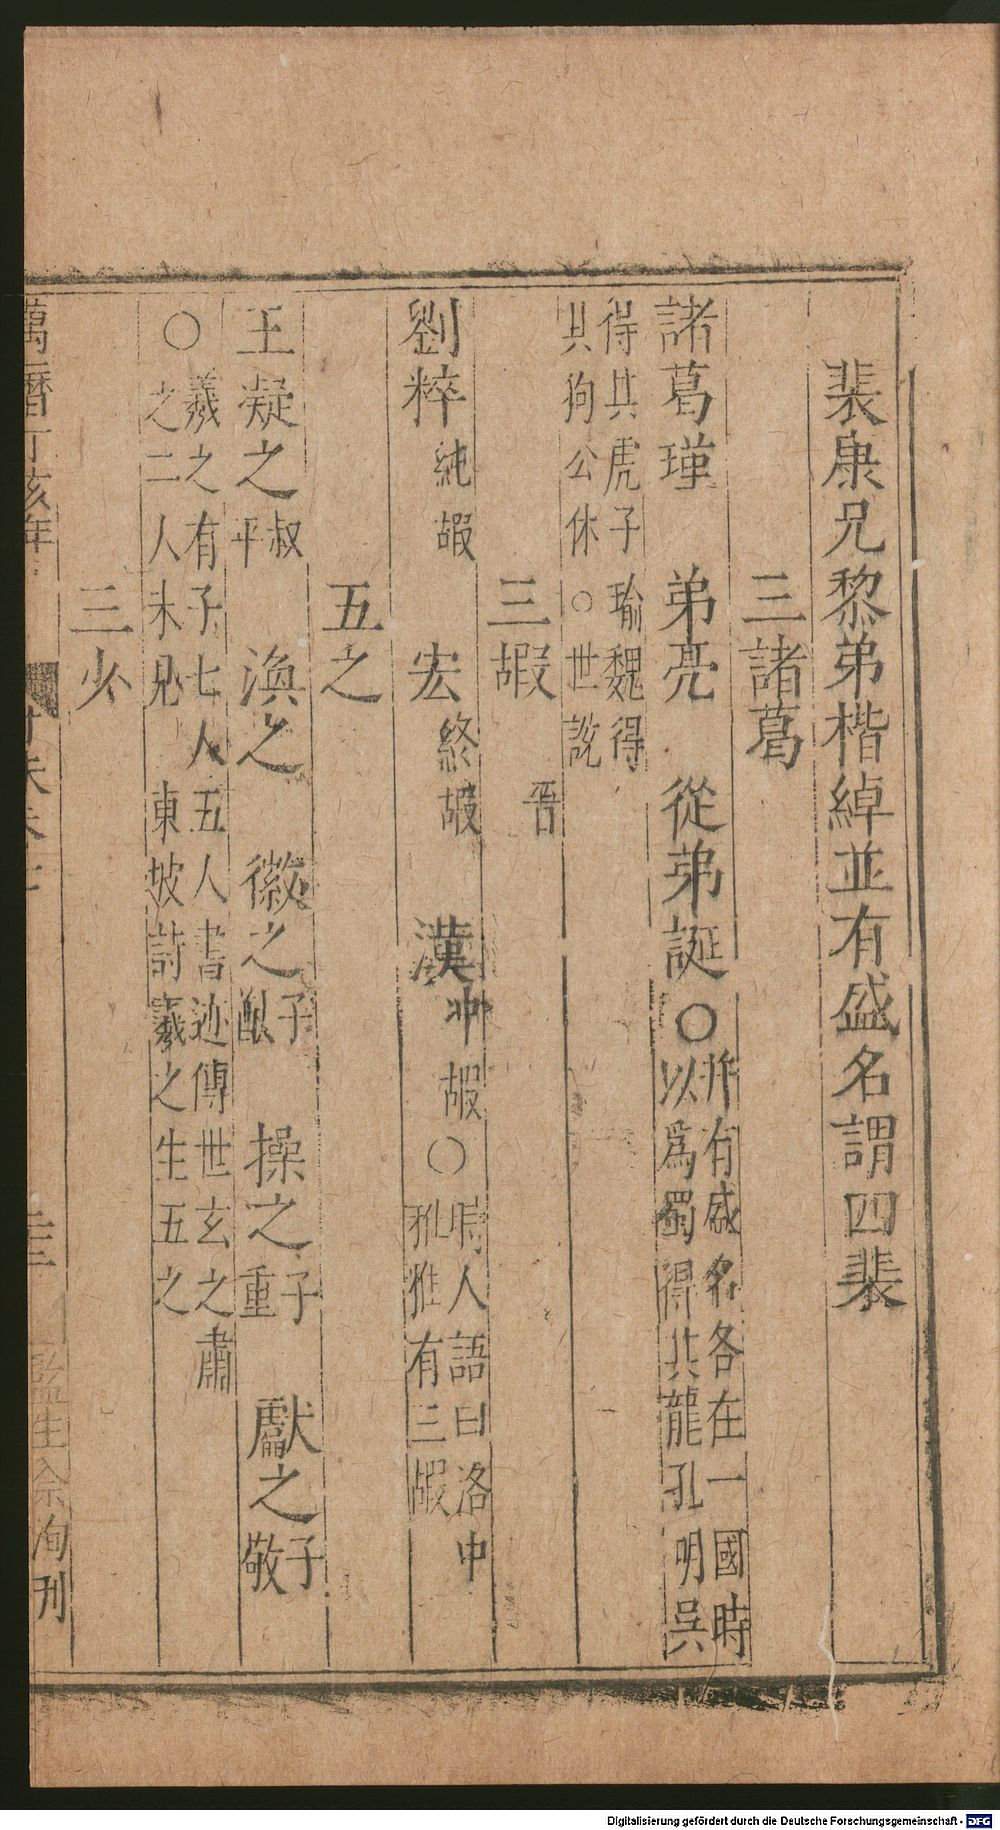 裴康兄黎弟楷綽並有盛名謂四裴
三諸葛
諸葛瑾 弟亮 從弟誕〇並有盛名各在一國時
以爲蜀得其龍孔明吳
得其虎子瑜魏得
其狗公休〇世說
三嘏 晉
劉粹純嘏 宏終嘏 漢冲嘏〇時人語曰洛中
雅雅有三嘏
五之
王凝之叔平 渙之 徽之子猷 操之子重 獻之子敬
〇羲之有子七人五人書迹傳世玄之肅
之二人未見 東坡詩羲之生五之
三少
萬曆丁亥年
監生佘洵刊
Digitalisierung gefördert durch die Deutsche Forschungsgemeinschaft - DFG